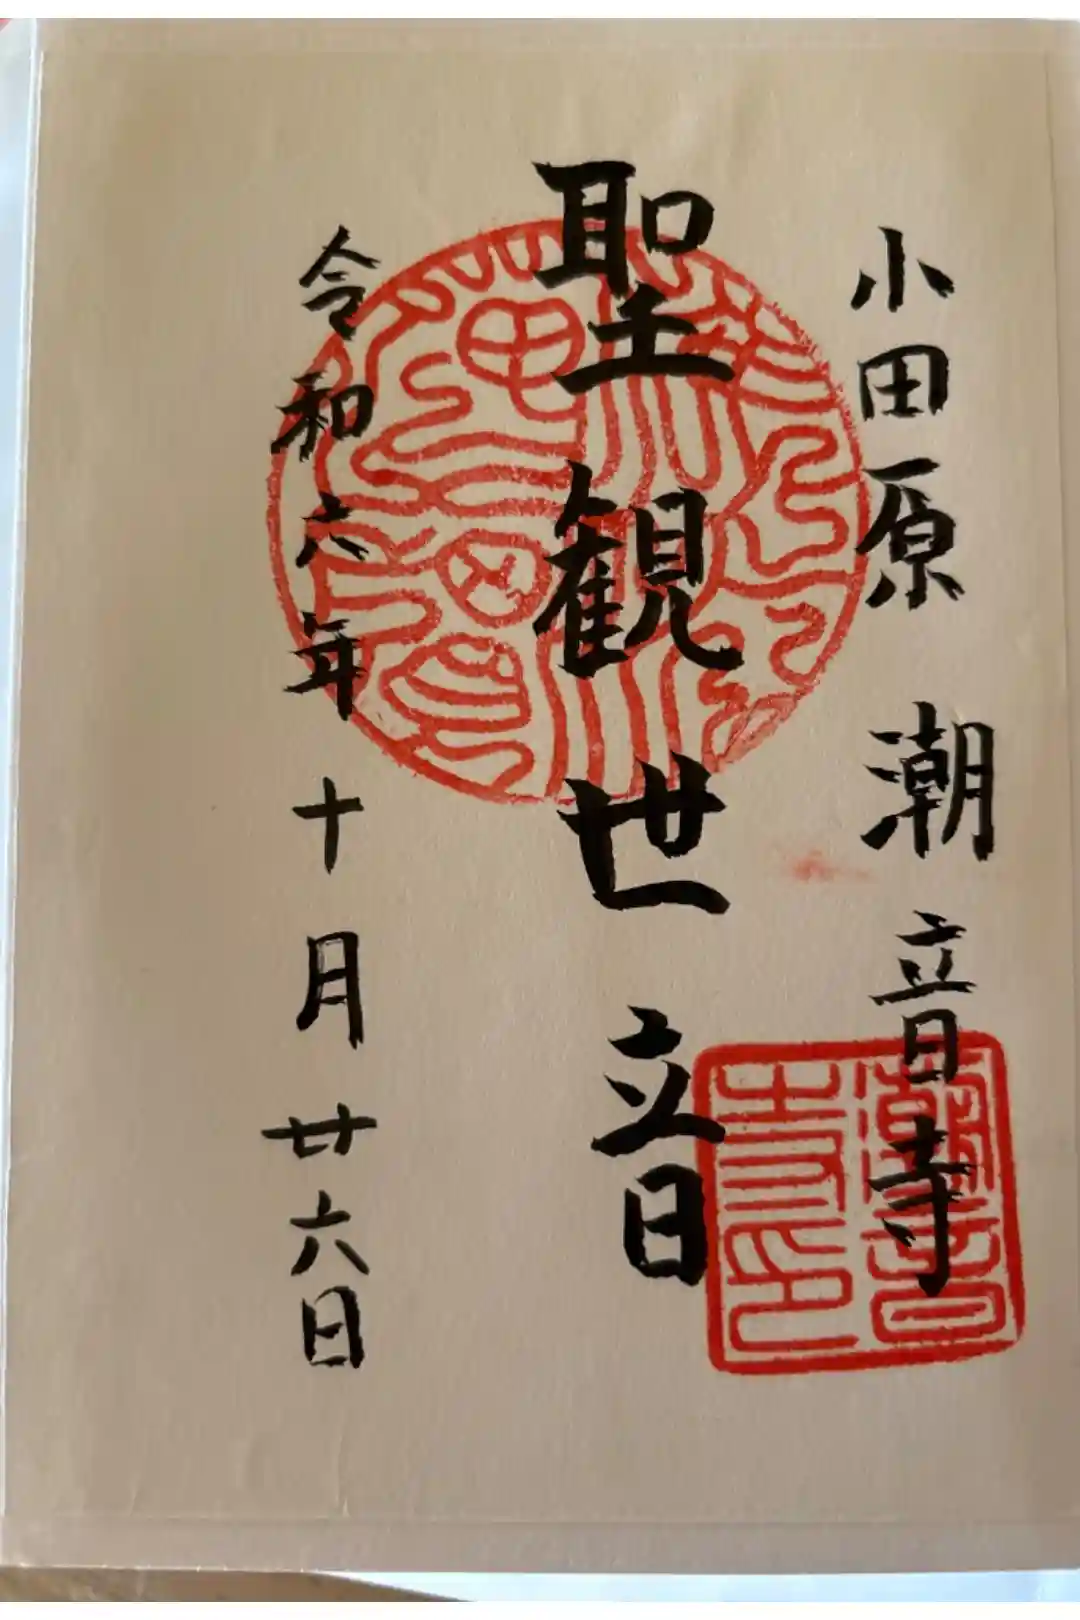 小田原 潮音寺
聖観世音
令和六年十月廿六日
潮音
寺印